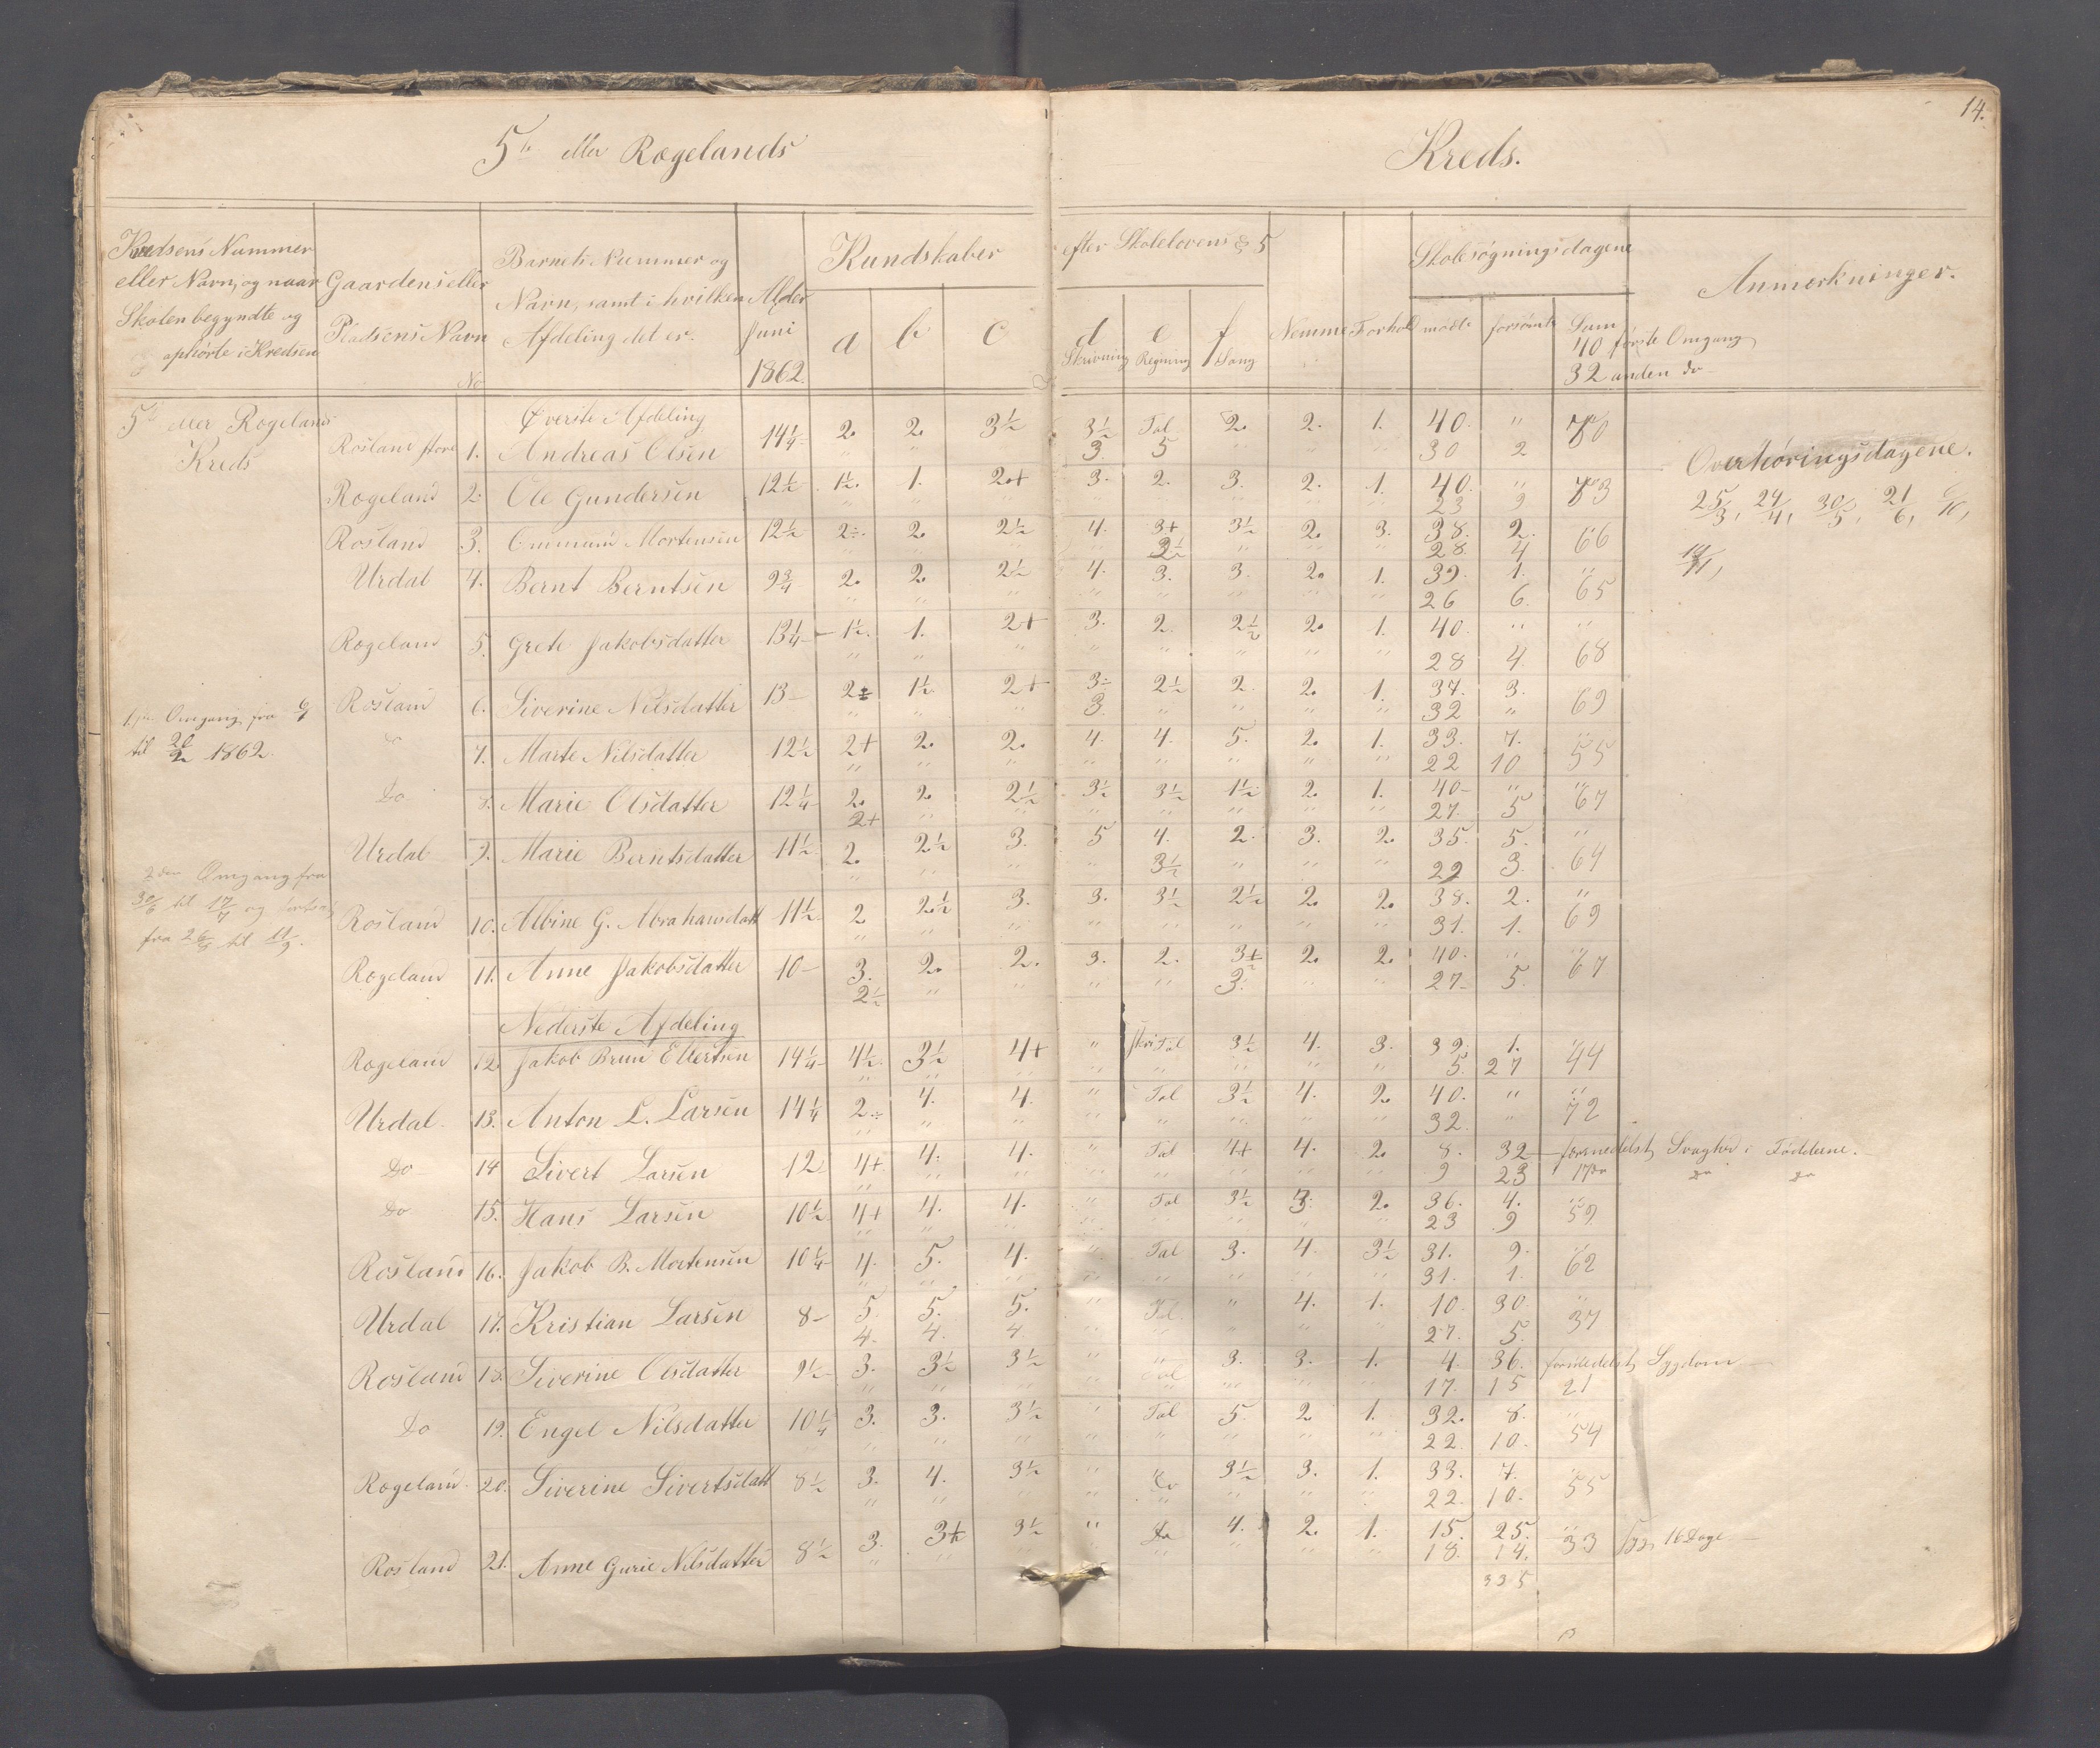 14.
5te eller Rægelands Kreds.
Kredsens Nummer eller Navn, og naar Skolen begyndte og ophörte i Kredsen
Gaardens eller Pladsens Navn
No
Barnets Nummer og Navn, samt i hvilken Afdeling det er.
Alder Juni 1862.
Kundskaber efter Skolelovens § 5
a b c d Skrivning e Regning f Sang
Nemme Forhold
Skolesøgningsdagene
mødte forsømte Sum
40 første Omgang
32 anden do
Anmærkninger.
5te eller Rægelands Kreds
Øverste Afdeling
Rosland store 1. Andreas Olsen 14 1/4 2. 2. 3 1/2 3 1/2 Tal 2. 2. 1. 40. "
" " " 3. 5 " " " 30 2 70
Rægeland 2. Ole Gundersen 12 1/2 1 1/2. 1. 2+ 3. 2. 3. 2. 1. 40. "
23 9 63
Rosland 3. Mortensen 12 1/2 2÷. 2. 2 1/2 4. 3+ 3 1/2 2. 3. 38. 2.
28. 4 66
Urdal 4. Bernt Berntsen 9 3/4 2. 2. 2 1/2 4. 3. 3. 2. 1. 39. 1.
26 6. 65
Rægeland 5. Grete Jakobsdatter 13 1/4 1 1/2. 1. 2+ 3. 2. 2 1/2 2. 1. 40. "
28 4. 68
Rosland 6. Siverine Nilsdatter 13 2± 1 1/2 2+ 3÷ 2 1/2 2. 2. 1. 37. 3.
3. 32 " 69
1ste Omgang fra 6/1 til 20/2 1862.
Do 7. Marte Nilsdatter 12 1/2 2+ 2. 2. 4. 4. 5. 2. 1. 33. 7.
22 10 55
Do 8. Marie Olsdatter 12 1/4 2. 2. 2 1/2 3 1/2 3 1/2 1 1/2 2. 1. 40 "
2+ 27. 5 67
Urdal 9. Marie Berntsdatter 11 1/2 2. 2 1/2 3. 5 4. 2. 3. 2. 35. 5.
3 1/2 29 3. 64
2den Omgang fra 30/6 til 17/7 og fortsat fra 26/8 til 11/9.
Rosland 10. Albine G. Abrahamsdatt 11 1/2 2 2 1/2 3. 3. 3 1/2 2 1/2 2. 2. 38. 2.
31. 1. 69
Rægeland 11. Anne Jakobsdatter 10 3. 2. 2. 3. 2. 3+ 2. 2. 40. "
2 1/2 3. 27. 5. 67
Nederste Afdeling
Rægeland 12. Jakob Brun Ellertsen 14 1/4 4 1/2. 3 1/2 4+ " Tal 3 1/2 4. 3. 39. 1.
5. 27 44
Urdal 13. Anton L. Larsen 14 1/4 2÷ 4. 4. " Tal 3 1/2 4. 2. 40. "
32. " 72
Do 14 Sivert Larsen 12 4+ 4. 4. " Tal 4+ 4. 2. 8. 32 formedelst Svaghed i Fødderne.
9 23 17 do do
Do 15. Hans Larsen 10 1/2 4+ 4. 4. " Tal 3 1/2 3. 2. 36. 4.
23 9 59
Rosland 16. Jakob B. Mortensen 10 1/4 4. 5. 4. " Tal 3. 4. 3 1/2 31. 9.
31. 1. 62
Urdal 17. Kristian Larsen 8 5. 5. 5. " Tal. " 4. 1. 10. 30.
4. 4. 4. 27. 5. 37
Rosland 18. Siverine Olsdatter 9 1/2 3. 3 1/2 3 1/2 " " 3. 3. 1. 4. 36. formedelst Sygdom
Tal 17. 15 21
Do 19. Engel Nilsdatter 10 1/4 3. 3. 3 1/2 " Tal 5. 2. 1. 32. 8.
22. 10. 54
Rægeland 20. Siverine Sivertsdatt 8 1/2 3. 4. 3 1/2 " Do 3 1/2 3. 1. 33. 7.
22. 10. 55
Rosland 21. Anne Gurie Nilsdatter 8 1/2 3. 3+ 3 1/2 " Do 4. 2. 1. 15. 25.
18. 14. 33 Syg 16 Dage
335
Overhøringsdagene.
25/3, 24/4, 30/5, 21/6,